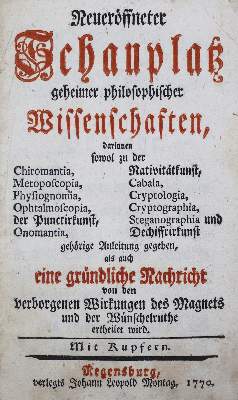 Neueröffneter
Schauplatz
geheimer philosophischer
Wissenschaften,
darinnen
sowol zu der
Chiromantia,
Metoposcopia,
Physiognomia,
Ophtalmoscopia,
der Punctirkunst,
Onomantia,
Nativitätkunst,
Cabala,
Cryptologia,
Cryptographia,
Steganographia und
Dechiffrirkunst
gehörige Anleitung gegeben,
als auch
eine gründliche Nachricht
von den
verborgenen Wirkungen des Magnets
und der Wünschelruthe
ertheilet wird.
Mit Kupfern.
Regensburg,
verlegts Johann Leopold Montag, 1770.